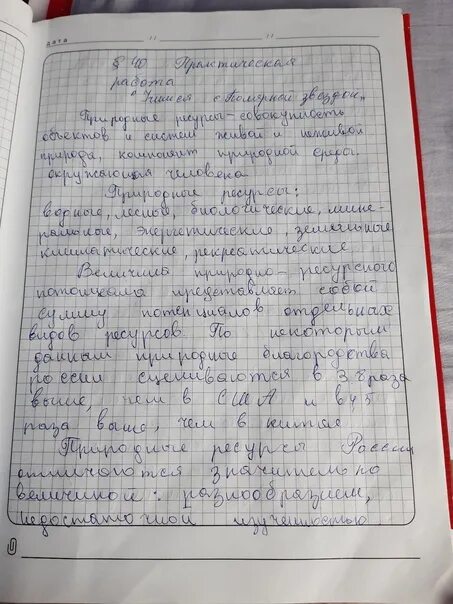 дата
§ 40 Практическая
работа
"Учимся с Полярной звездой"
Природные ресурсы-совокупность
объектов и систем живой и неживой
природа, компонент природной среды.
окружающая человека
Природные ресурсы:
водные, лесные, биологические, мине-
ральные, энергетические, земельные
климатические, рекреатические
Величина природно-ресурсного
потенциала представляет собой
сумму потенциалов отдельных
видов ресурсов. По некоторым
данным природные благородства
россии сцениваются в раза
выше, чем в США и в 4 5
раза выше, чем в китае
Природные ресурсы России
отличаются значительно
величиной: разнообразием,
недостаточной изученостью